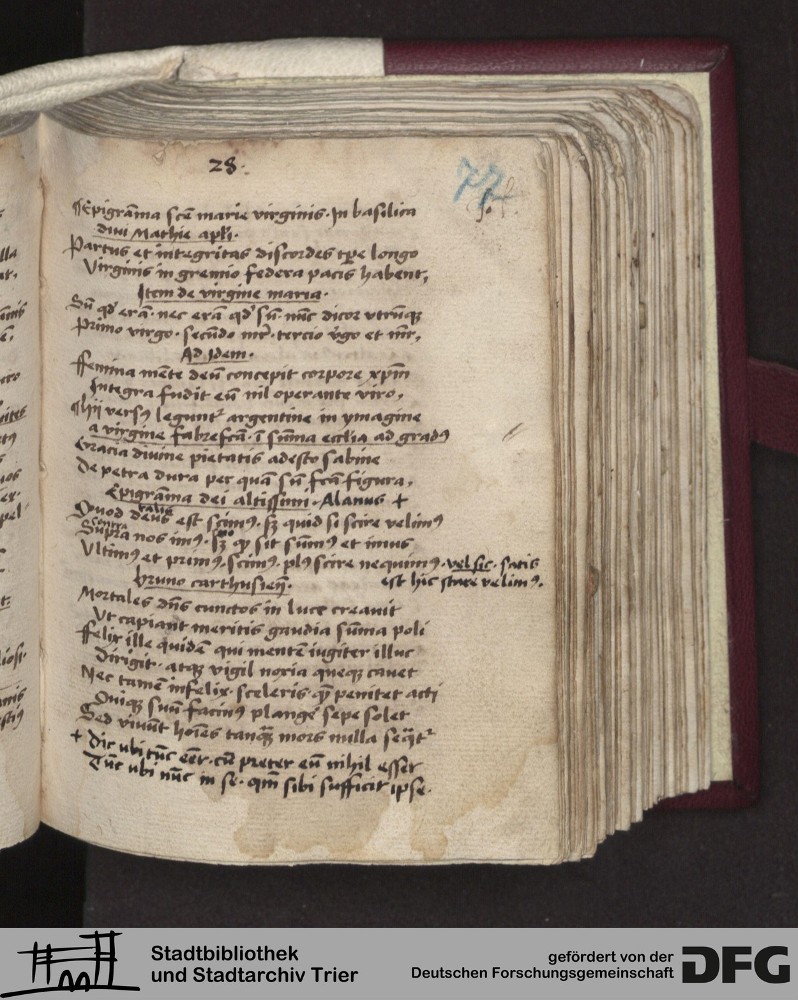 28.
77
¶Epigrãma scẽ marie virginis. In basilica
divi Mathie apłi.
Partus et integritas discordes tꝑe longo
Virginis in gremio federa pacis habent,
Item de virgine maria.
Sũ qd' erã. nec erã qd' sũ. nũc dicor vtrũqꝫ
Primo virgo. secũdo mr̃. tercio v̾go et mr̃,
Ad Idem.
ffemina mẽte deũ concepit corpore xp̃m
Integra fudit eũ nil operante viro,
¶hii versꝯ leguntᷣ argentine in ymagine
a virgine fabrefcã. ĩ sũma ecclia ad gradꝯ
Gracia divine pietatis adesto sabine
De petra dura per quã sũ fcã figura,
Epigrãma dei altissimi. Alanus +
Quod deus est scimꝯ. sꝫ quid si scire velimꝯ
talis
contra
Supra nos imꝯ. sꝫ qꝫ sit sũmꝯ et imus
Vltimꝯ et primꝯ. scimꝯ. plꝯ scire nequimꝯ. vel sic. satis
est hic stare velimꝯ.
bruno carthusieñ.
Mortales dñs cunctos in luce creavit
Vt capiant meritis gaudia sũma poli
ffelix ille quidẽ qui mentẽ iugiter illuc
Dirigit. atqꝫ vigil noxia queqꝫ cavet
Nec tamẽ infelix. sceleris quẽ penitet acti
Quiqꝫ suũ facinꝯ plangẽ sepe solet
Sed vivũt hoĩes tanqꝫ mors nulla seqtᷣ
+ Dic ubi tũc eẽt. cũ preter eũ nihil esset
Tũc ubi nũc in se. qm̃ sibi sufficit ipse.
Stadtbibliothek
und Stadtarchiv Trier
gefördert von der
Deutschen Forschungsgemeinschaft
DFG